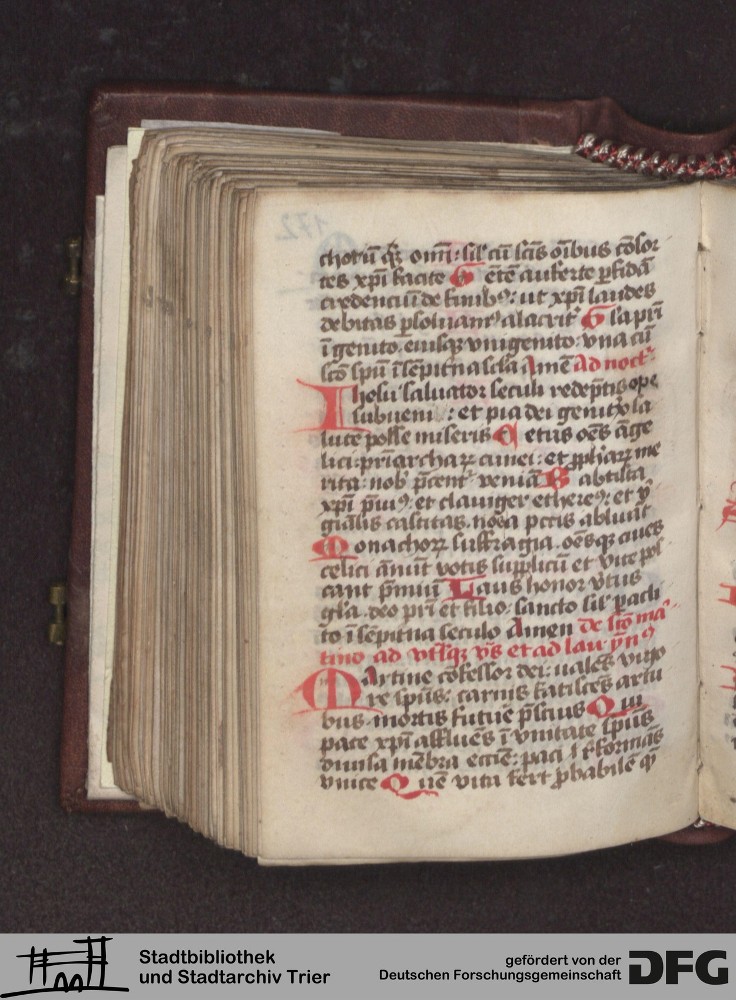 chorū qꝫ omī: sil' cū scīs oībus cōsor
tes xpī facite Gētē auferte pfidā
credenciū de finibꝰ: ut xpī laudes
debitas psoluamꝰ alacrit' Gl'a prī
īgenito. eiusqꝫ vnigenito: vna cū
scō spū ī sēpit'na sc̄la Amē Ad noct'
Ihesu saluator seculi redēptis ope
subueni: et pia dei genit'x sa
lutē posce miseris Cetus oēs āge
lici: priarchaꝝ cunei: et pphaꝝ me
rita: nob' p̄cent' veniā Babtista
xpī p̄uiꝰ: et clauiger ethereꝰ: et
ginalis castitas. nos a pctis abluāt
Monachoꝝ suffragia. oēsqꝫ ciues
celici ānuāt votis supplicū et vite pos
cant p̄miū Laus honor v̄tus
gl'a. deo prī et filio: sancto sil' pacli
to ī sēpit'na seculo Amen de scō ma'
tino ad vtsqꝫ vs et ad lau' ynꝰ
Martine cōfessor dei: uales vigo
re spūs: carnis fatiscēs artu
bus. mortis future p̄scius Qui
pace xpī affluēs ī vnitate spūs
diuisa mēbra eccīe: paci reformās
vnice Quē vita fert pbabilē q̄
172
Stadtbibliothek
und Stadtarchiv Trier
gefördert von der
Deutschen Forschungsgemeinschaft
DFG